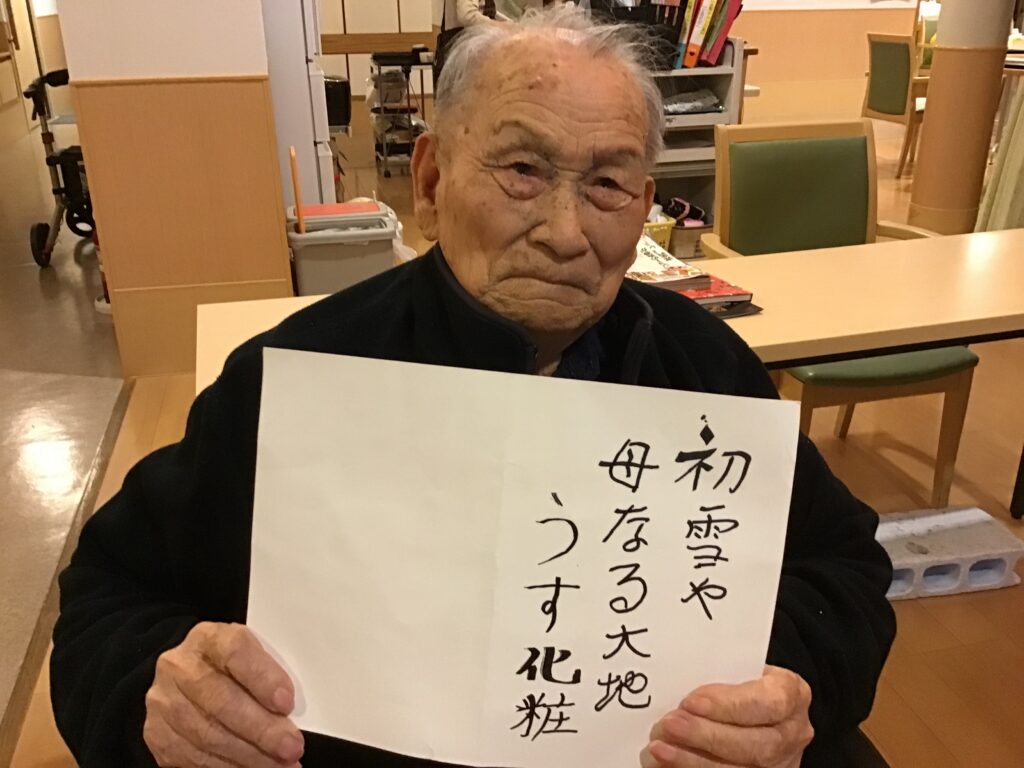 初雪や
母なる大地
うす化粧